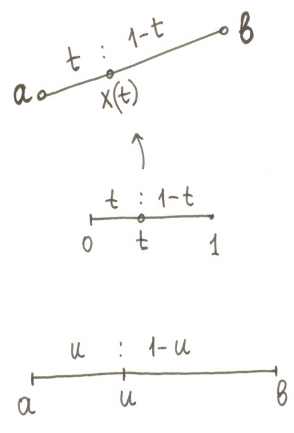 t : 1-t
a b
x(t)
t : 1-t
0 t 1
u : 1-u
a u b